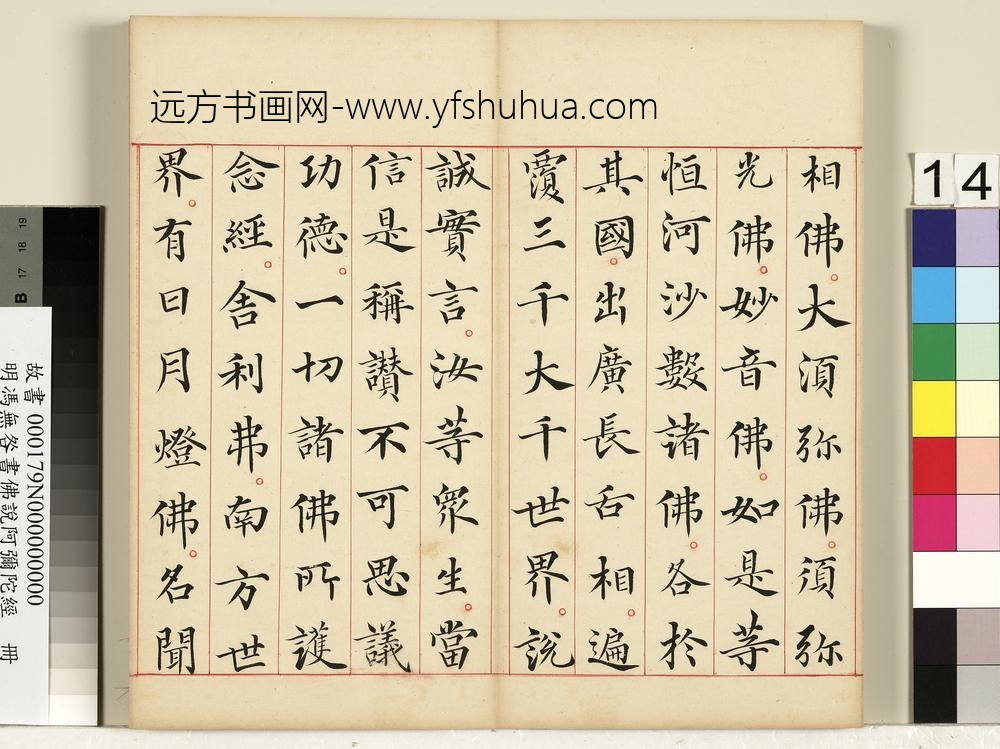 远方书画网-www.yfshuhua.com
相佛。大須弥佛。須弥
光佛。妙音佛。如是等
恒河沙數諸佛。各於
其國。出廣長舌相。遍
覆三千大千世界。說
誠實言。汝等眾生。當
信是稱讚不可思議
功德。一切諸佛所護
念經。舍利弗。南方世
界。有日月燈佛。名聞
14
故書 000179N000000000
明馮無咎書佛說阿彌陀經 冊
B 17 18 19